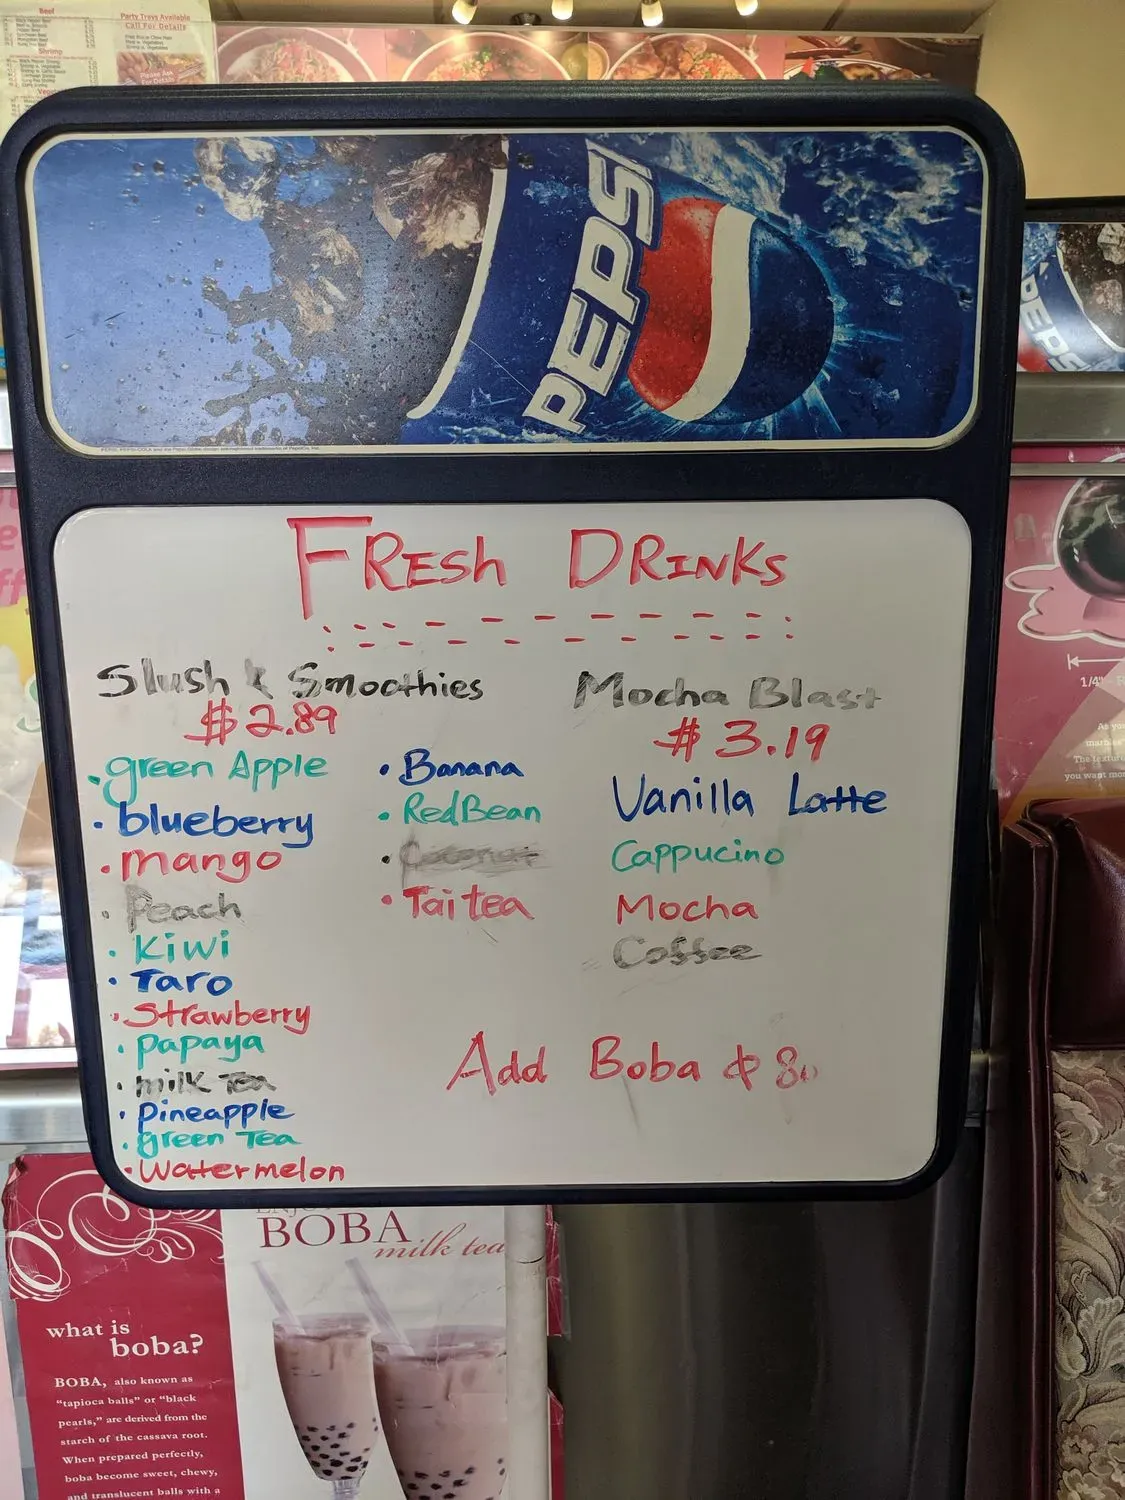 Beef
Shrimp
Party Trays Available
Call For Details
Please Ask
For Details
PEPSI
PEPSI
FRESH DRINKS
Slush & Smoothies
$2.89
• green Apple
• blueberry
• mango
• Peach
• Kiwi
• Taro
• Strawberry
• papaya
• milk Tea
• pineapple
• green Tea
• Watermelon
• Banana
• RedBean
• Coconut
• Tai tea
Mocha Blast
$3.19
Vanilla Latte
Cappucino
Mocha
Coffee
Add Boba ¢ 80
1/4"
As you
The texture
you want mor
BOBA
milk tea
what is
boba?
BOBA, also known as
"tapioca balls" or "black
pearls," are derived from the
starch of the cassava root.
When prepared perfectly,
boba become sweet, chewy,
and translucent balls with a